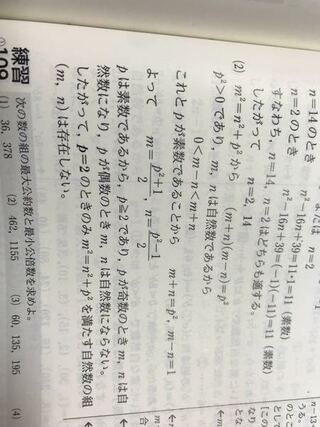 n=14のとき
または n=2
n²-16n+39=11・1=11 (素数)
n=2のとき
n²-16n+39=(-1)(-11)=11 (素数)
すなわち，n=14，n=2はどちらも適する。
したがって n=2, 14
(2) m²=n²+p²から (m+n)(m-n)=p²
p²>0であり，m, nは自然数であるから
0<m-n<m+n
これとpが素数であることから m+n=p², m-n=1
よって m=(p²+1)/2, n=(p²-1)/2
pは素数であるから，p≧2であり，pが奇数のときm, nは自
然数になり，pが偶数のときm, nは自然数にならない。
したがって，p=2のときのみm²=n²+p²を満たす自然数の組
(m, n)は存在しない。
練習
109
次の数の組の最大公約数と最小公倍数を求めよ。
(1) 36, 378
(2) 462, 1155
(3) 60, 135, 195
(4)